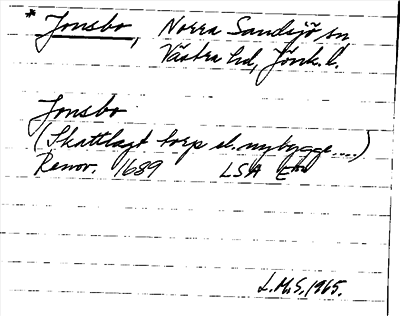 * Jonsbo, Norra Sandsjö sn
Västra hd, Jönk. l.
Jonsbo
(Skattlagt torp el. nybygge....)
Renov. 1689 LSA E
L.M.S. 1965.